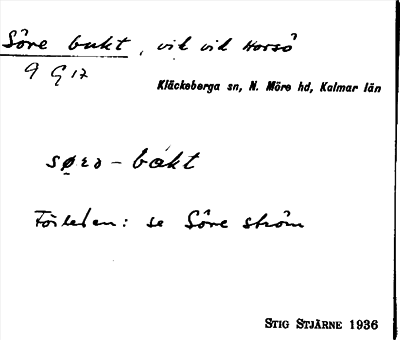 Söre bukt, vik vid Horsö
9 G 17
Kläckeberga sn, N. Möre hd, Kalmar län
sørə - bukt
Förleden: se Söre ström
STIG STJÄRNE 1936